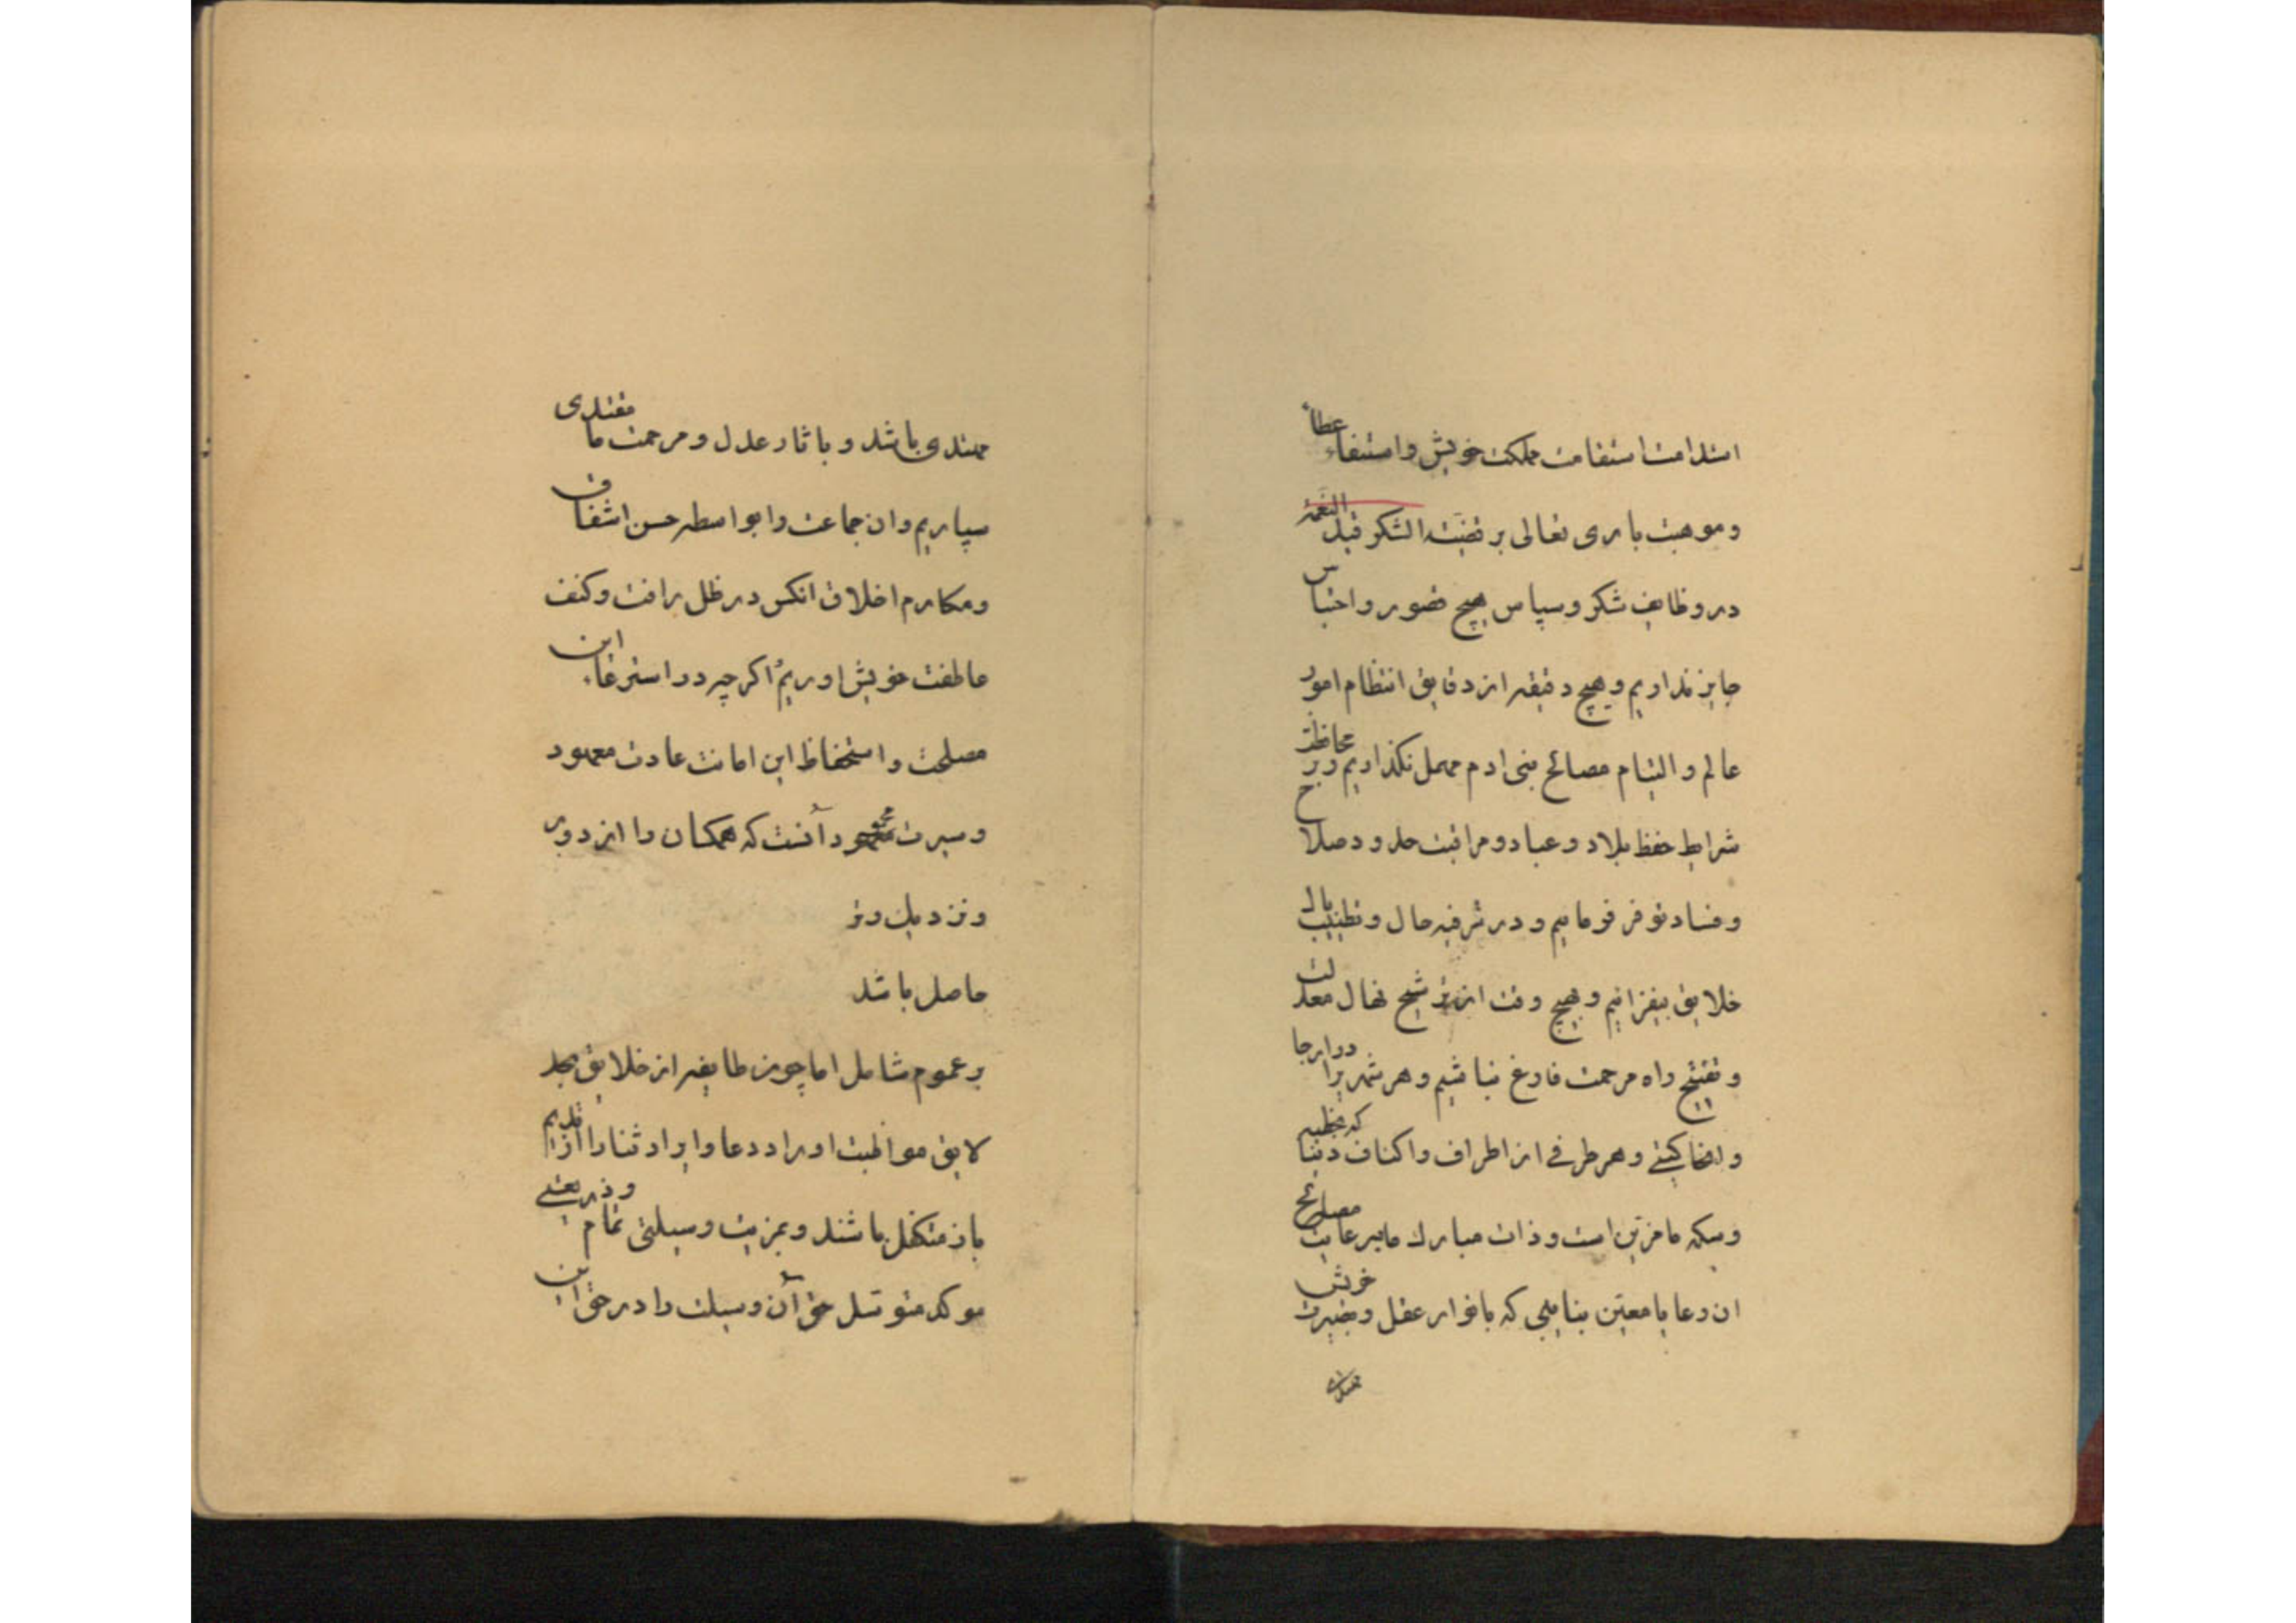 استدامت استقامت مملکت خویش و استبقاء عطاء
و موهبت باری تعالی بر قضیت الشکر قید النعمة
در وظایف شکر و سپاس هیچ قصور و احتباس
جایز نداریم و هیچ دقیقه از دقایق انتظام امور
عالم و التیام مصالح بنی ادم مهمل نکذاریم و بر محافظت
شرایط حفظ بلاد و عباد و مراقبت حدود صلاح
و فساد توفر فرماییم و در ترفیه حال و تطییب بال
خلایق بیفزائیم و هیچ وقت از ترشیح نهال معدلت
و راه مرحمت فارغ نباشیم و هر شهریرا در ارجا
و انحا کیتی و هر طرفی از اطراف و اکناف دنیا که بخطبه
و سکه ما مزین است و ذات مبارك ما برعایت مصالح
ان رعایا معین بنایبی که بانوار عقل و بصیرت خویش
مهتدی باشد و باثار عدل و مرحمت ما مقتدی
سپاریم و ان جماعت را بواسطه حسن اشفاق
و مکارم اخلاق انکس در ظل رافت و کنف
عاطفت خویش اوریم اکر چه در استرعاء این
مصلحت و استحفاظ این امانت عادت معهود
و سیرت محمود آنست که همکان را از دور
و نزدیك و تر
حاصل باشد
بر عموم شامل اما چون طایفه از خلایق
لایق مواظبت اوراد دعا و ایراد ثنا را از قدیم
باز متکفل باشند و بمزیت وسیلتی تمام و ذریعتی
موکد متوسل حق آن وسیلت را در حق این